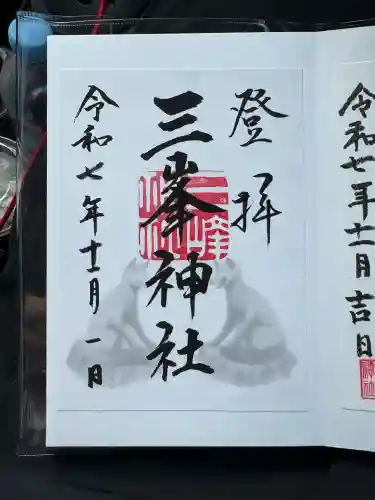 登拝
三峯神社
令和七年十一月一日
令和七年十一月吉日